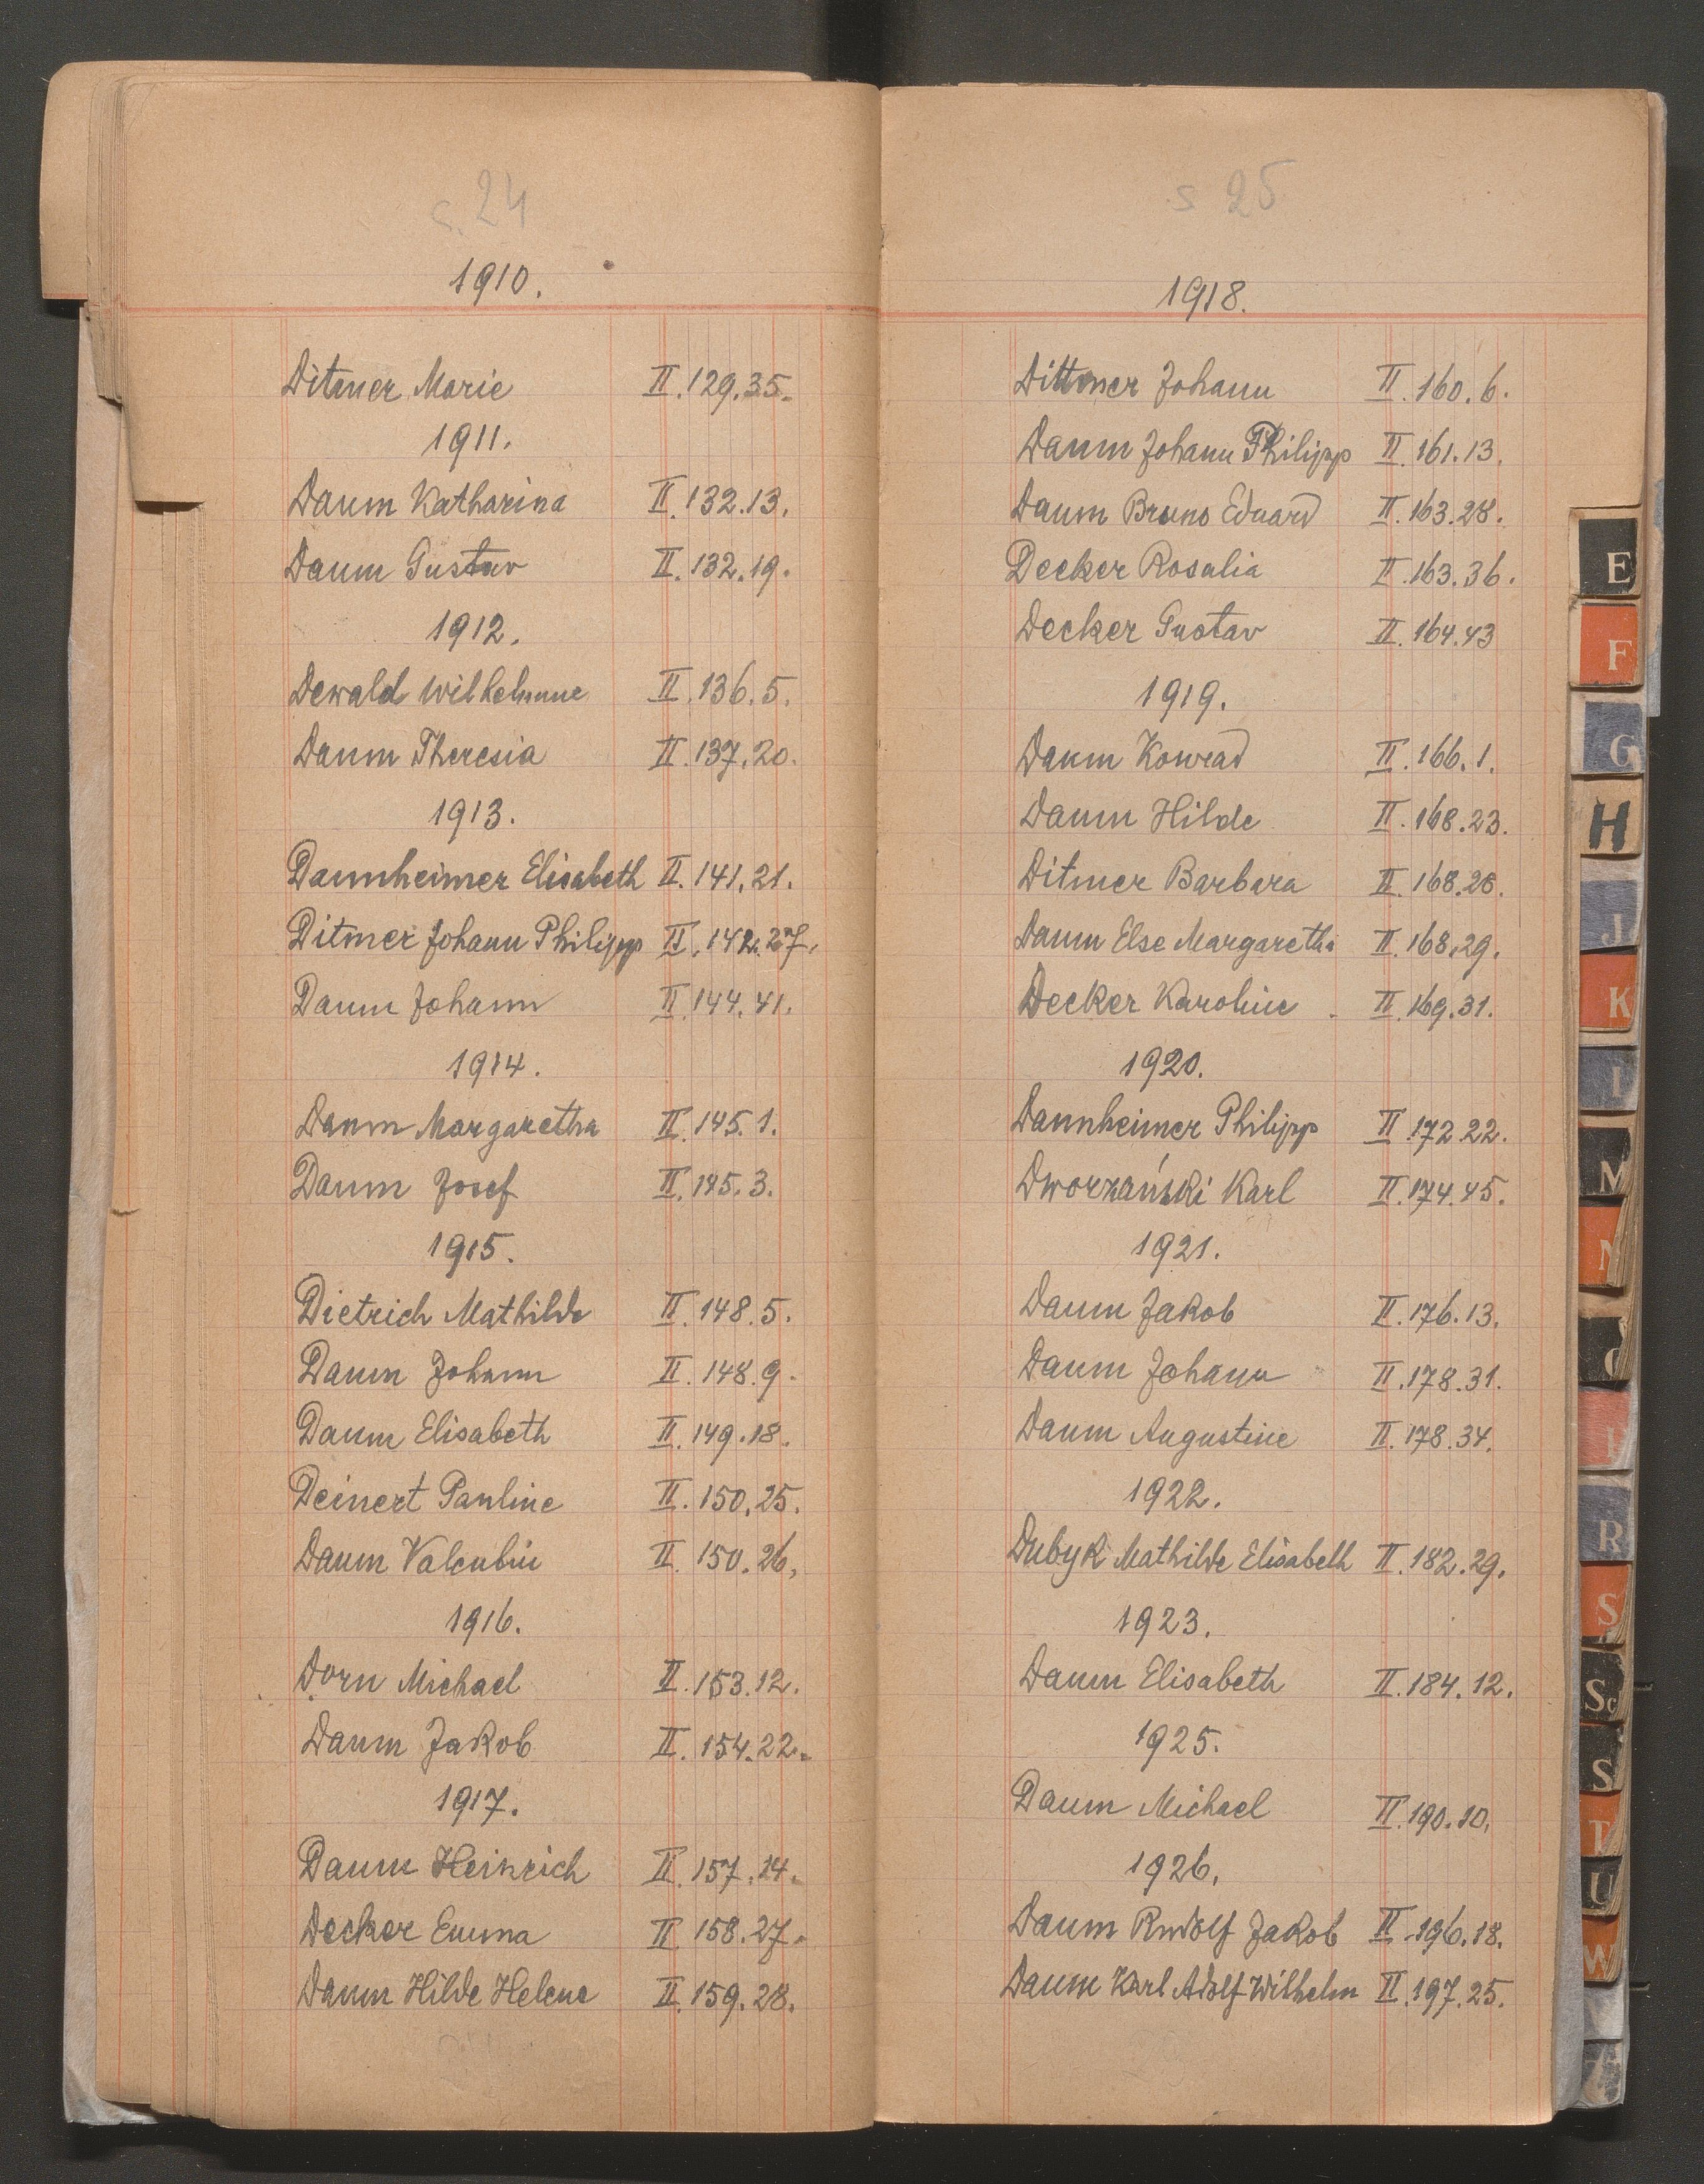 s. 24
1910.
Ditmer Marie II. 129. 35.
1911.
Daum Katharina II. 132. 13.
Daum Gustav II. 132. 19.
1912.
Dewald Wilhelmine II. 136. 5.
Daum Theresia II. 137. 20.
1913.
Dannheimer Elisabeth II. 141. 21.
Ditmer Johann Philipp II. 142. 27.
Daum Johann II. 144. 41.
1914.
Daum Margaretha II. 145. 1.
Daum Josef II. 145. 3.
1915.
Dietrich Mathilde II. 148. 5.
Daum Johann II. 148. 9.
Daum Elisabeth II. 149. 18.
Deinert Pauline II. 150. 25.
Daum Valentin II. 150. 26.
1916.
Dorn Michael II. 153. 12.
Daum Jakob II. 154. 22.
1917.
Daum Heinrich II. 157. 14.
Decker Emma II. 158. 27.
Daum Hilde Helene II. 159. 28.
s 25
1918.
Dittmer Johann II. 160. 6.
Daum Johann Philipp II. 161. 13.
Daum Bruno Eduard II. 163. 28.
Decker Rosalia II. 163. 36.
Decker Gustav II. 164. 43
1919.
Daum Konrad II. 166. 1.
Daum Hilde II. 168. 23.
Ditmer Barbara II. 168. 26.
Daum Else Margaretha II. 168. 29.
Decker Karoline II. 169. 31.
1920.
Dannheimer Philipp II. 172 22.
Dworzański Karl II. 174. 45.
1921.
Daum Jakob II. 176. 13.
Daum Johann II. 178. 31.
Daum Augustine II. 178. 34.
1922.
Dubyk Mathilde Elisabeth II. 182. 29.
1923.
Daum Elisabeth II. 184. 12.
1925.
Daum Michael II. 190. 10.
1926.
Daum Rudolf Jakob II. 196. 18.
Daum Karl Adolf Wilhelm II. 197. 25.
E
F
G
H
J
K
M
R
S
Sc
S
T
U
W